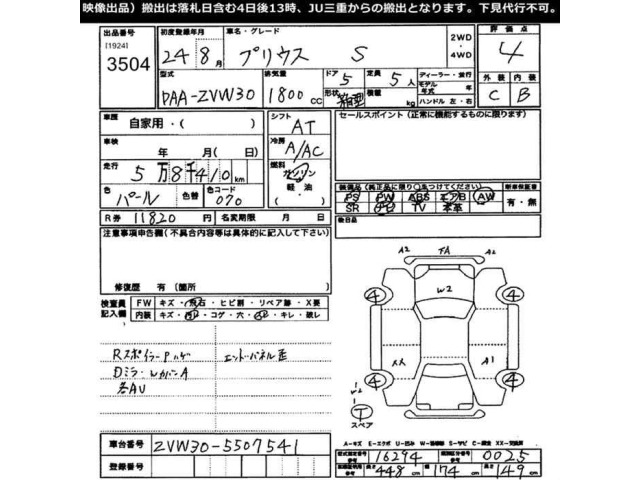 映像出品）搬出は落札日含む4日後13時、JU三重からの搬出となります。下見代行不可。
出品番号 初度登録年月 車名・グレード 2WD・4WD 評価点
[1924]
3504 24年8月 プリウス S 4
型式 排気量 ドア 定員 ディーラー・並行 外装 内装
DAA-ZVW30 1800CC 5 5人 モデル年式 年 C B
形状 箱型 積載 kg ハンドル 左・右
車歴 自家用・（ ） シフト AT セールスポイント（正常に機能するものに限ります）
車検 年 月（ 日） 冷房 A/AC
走行 5万8千410km 燃料 ガソリン
軽油
・（ ）
色 パール 色替 色コード 070 装備品（純正品に限り○をつけてください） 新車保証書
PS PW ABS エアB AW 有・無
SR ナビ TV 本革
R券 11820円 名変期限 月 日 後日品
注意事項申告欄（不具合内容等は具体的に記入して下さい）
A2 FA A2
W2
4 4
修復歴 有（箇所 ）
検査員記入欄 FW キズ・飛石・ヒビ割・リペア跡・X要
内装 キズ・コゲ・穴・キレ・破レ
Rスポイラー Pハゲ エンドパネル歪
A1
Dミラー レカバーA
各AU
4 4
W2
T
スペア
車台番号 ZVW30-5507541
登録番号
型式指定番号 16294 類別区分番号 0025
長さ 448cm 幅 174cm 高さ 149cm